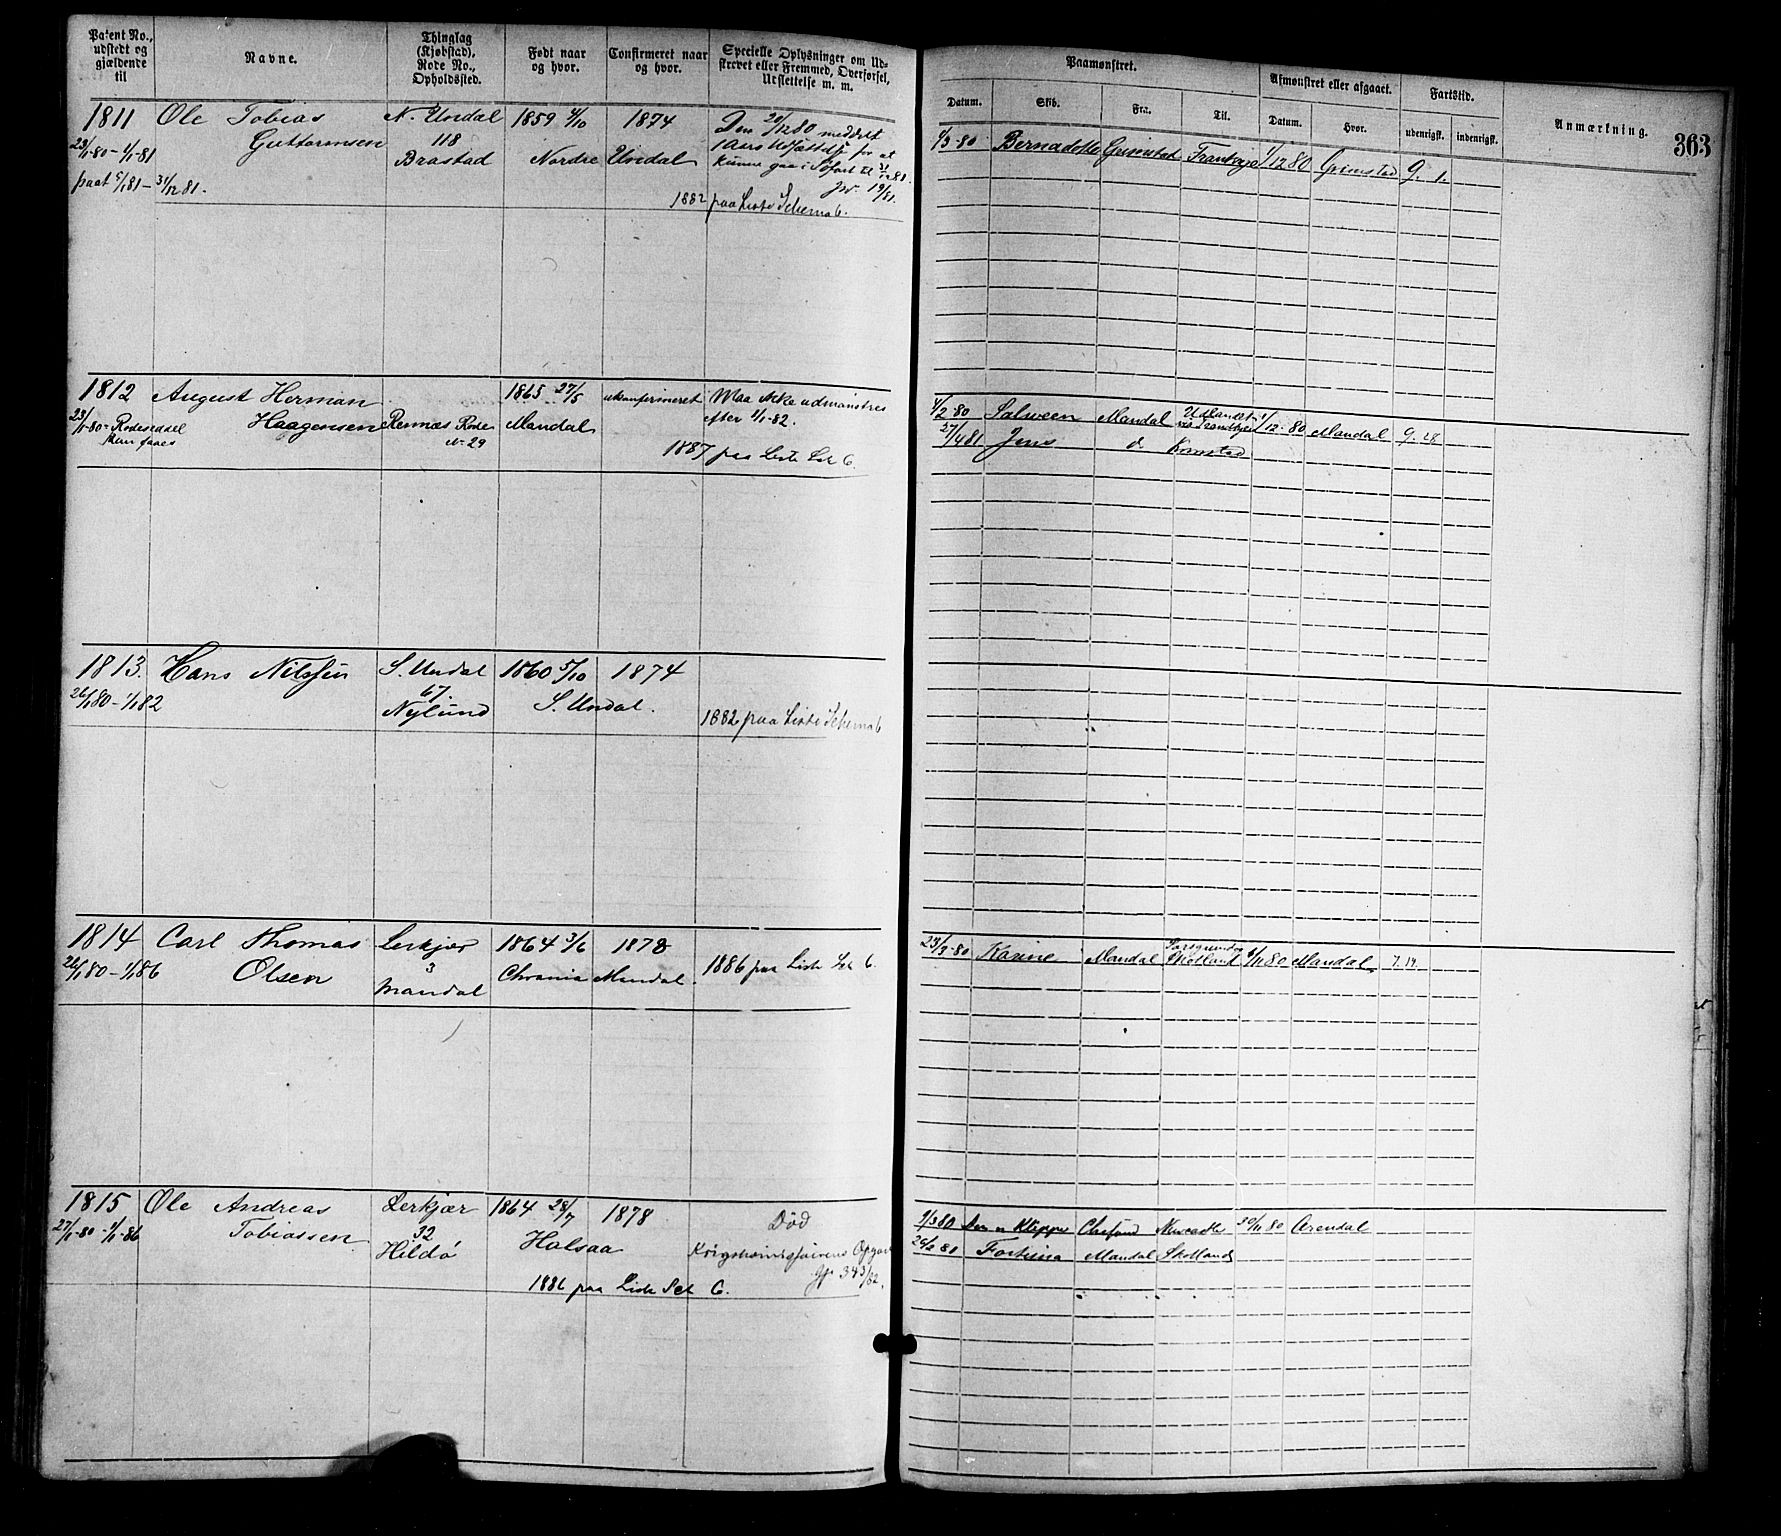 Patent No., udstedt og gjældende til
Navne.
Thinglag (Kjøbstad), Rode No., Opholdssted.
Født naar og hvor.
Confirmeret naar og hvor.
Specielle Oplysninger om Udskrevet eller Fremmed, Overførsel, Udslettelse m. m.
Paamønstret.
Afmønstret eller afgaaet.
Fartstid.
Anmærkning.
363
Datum.
Skib.
Fra.
Til.
Datum.
Hvor.
udenrigsk.
indenrigsk.
1811 Ole Tobias N. Undal 1859 4/10 1874 Den 20/12 80 meddelt
23/1-80 - 1/1-81 Guttormsen 118 1 Aars Udsættelse for at
Brastad Nordre Undal kunne gaa i Fart til 31/12 81.
paat 5/1 81 - 31/12 81.
1882 paa Liste Schema 6.
1/3 80 Bernadotte Grimstad Frankrige 1/12 80 Grimstad 9. 1.
1812 August Herman 1865 27/5 ukonfirmeret Maa ikke udmønstres
23/1-80 - Rodeseddel Haagensen Rennæs Rode Mandal efter 1/1-82.
kun faaes No 29
1887 paa Liste Sch 6.
4/2 80 Salween Mandal Udlandet 1/12-80 Mandal 9. 28
27/4 81 Jens d.
1813. Hans Nilssen S. Undal 1860 5/10 1874
26/1 80 - 1/1 82 67.
Nylund S. Undal.
1882 paa Liste Schema 6
1814 Carl Thomas Lerkjær 1864 3/6 1878
26/1 80 - 1/1 86 Olsen 3 Chrania Mandal. 1886 paa Liste Sch 6.
Mandal
23/3-80 Karine Mandal Skotland 1/11 80 Mandal 7. 19.
1815 Ole Andreas Lerkjær 1864 28/7 1878 Død
27/1-80 - 1/1-86 Tobiassen 32 Halsaa
Hildø
1886 paa Liste Sch 6.
1/3 80 Kleppe Newcastle 30/11 80 Arendal
26/2 81 Fortuna Mandal Skotland